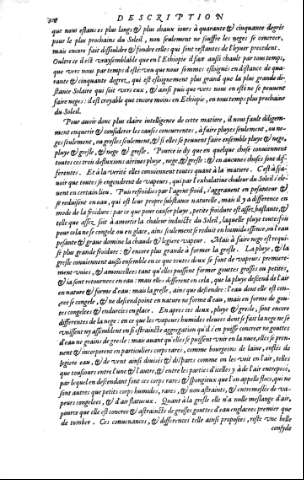 DESCRIPTION
que nous estans es plus longs & plus chaux iours à quarante & cinquante degrés
pour le plus prochains du Soleil, non seulement ne souffre les neges se concreer,
mais encore fait dissoudre & fondre celles qui sont restantes de l'hyver precedent.
Outre ce il est vraysemblable que en l'Ethiopie il fait aussi chault par tout temps,
que vers nous par temps d'esté: veu que nous sommes esloignés en distance de quarante
& cinquante degrez, qui est esloignement plus grand que la plus grande
stance Solaire qui soit vers eux, & ainsi puis que vers nous en esté ne se peuvent
faire neges: il est croyable que encore moins en Ethiopie, en tout temps plus prochains
du Soleil.
Pour avoir donc plus claire intelligence de cette matiere, il nous faule
enquerir & considerer les causes concurrentes, à faire pluyes seulement, ou neges
seulement, ou gresles seulement, & si elles se peuvent faire ensemble pluye & nege,
pluye & gresle, & nege & gresle. Parce il dy que en quelque chose conviennent
toutes ces trois desusnommées pluye, nege, gresle: & en aucunes choses sont
differentes. Et à la verité elles conviennent toutes quant à la matiere.
que toutes se engendrent de vapeurs, qui par l'exhalation chaleur du Soleil
en certain lieu. Puis refroidies par l'agent froid, s'aggravent en pesanteur &
se reduisent en eau, qui est leur propre substance naturale, mais il y a difference en
mode de la froidure: par ce que pour causer pluye, petite froidure est assés bastante, &
telle que
pour cela ne se congele ou en glace, ains seulement se reduit en humide essence, ou l'eau
pesante & grave domine la chaude & legiere vapeur. Mais à faire nege est requise
plus grande froidure: & encore plus grande à former la gresle. La pluye & la
gresle conviennent aussi ensemble en ce que toutes deux se font de vapeurs premierement
unies, & amoncelées tant qu'elles puissent former gouttes grosses ou petites,
& ia sont retournées en eau: mais elles different en cela, que la pluye descend de l'air
en nature & forme d'eau: mais la gresle, ains que descendre: l'eau dont elle est concreée
se congele, & ne descend point en nature ne forme d'eau, mais en forme de gouttes
congelées & endurcies en glace. En apres ces deux, pluye & gresle, sont encore
differentes de la nege: en ce que les vapeurs humides esleuées dont se fait la nege ne se
unissent ny assemblent en si estrainte aggregation qu'il s'en puisse concreer ne gouttes
d'eau ne grains de gresle: mais avant qu'elles se puissent unir en la nuée, elles se prennent
& incorporent en particuliers corps rares, comme bourgeons de laine, restés de
legiere eau, & de vent ainsi divisés & distraits comme on les voit en l'air, telles
que toujours entre l'une & l'autre, & entre les parties d'icelles y à de l'air entreposé,
par lequel en descendant sont ces corps rares & spongieux que l'on appelle flocs, qui ne
sont autres que petits corps humides, rares, & non astraints, & entremeslés de vapeurs
congelées, & d'air spatieux. Quant à la gresle elle n'a nulle meslange d'air,
pource que elle est concreée & astrainte de grosses gouttes d'eau englacées premier que
de tomber. Ces convenances, & differences telle ainsi proposées, reste une belle